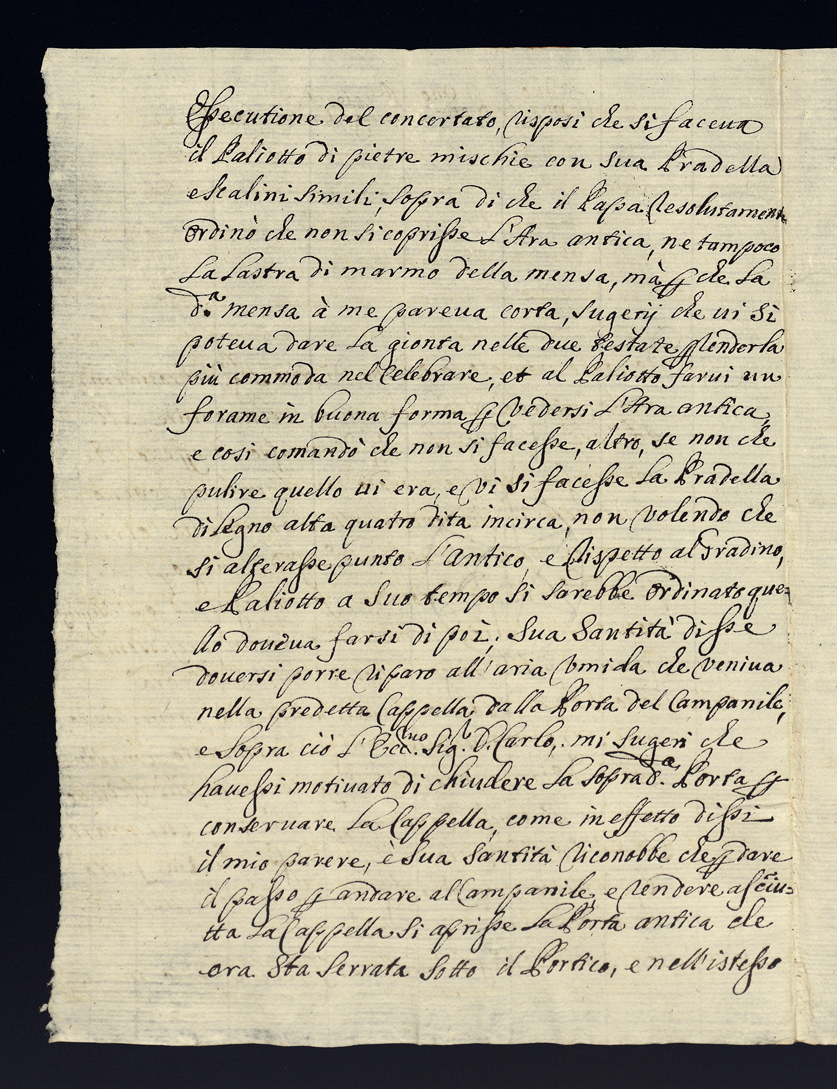 Essecutione del concertato, risposi che si faceua
il Paliotto di pietre mischie con sua Pradella
e scalini simili, sopra di che il Papa resolutament
ordinò che non si coprisse l'Ara antica, ne tampoco
la lastra di marmo della mensa, mà ꝑ che la
d.ª mensa à me pareua corta, sugerij che ui si
poteua dare la gionta nelle due testate ꝑ renderla
più commoda nel Celebrare, et al Paliotto farui un
forame in buona forma ꝑ vedersi l'Ara antica,
e cosi comandò che non si facesse, altro, se non che
pulire quello ui era, e vi si facesse la Pradella
di legno alta quatro dita incirca, non volendo che
si alterasse punto l'antico, e rispetto al Gradino,
e Paliotto a suo tempo si sarebbe ordinato que=
llo doueua farsi di poi; Sua Santità disse
douersi porre riparo all'aria vmida che veniua
nella predetta Cappella dalla Porta del Campanile,
e sopra ciò l'Ecc.mo Sig.r D. Carlo, mi sugerì che
hauessi motiuato di chiudere la soprad.ª Porta ꝑ
conseruare la Cappella, come in effetto dissi
il mio parere, è Sua Santità riconobbe che ꝑ dare
il passo ꝑ andare al Campanile, e rendere asciu=
tta la Cappella si aprisse la Porta antica che
ora sta serrata sotto il Portico, e nell'istesso